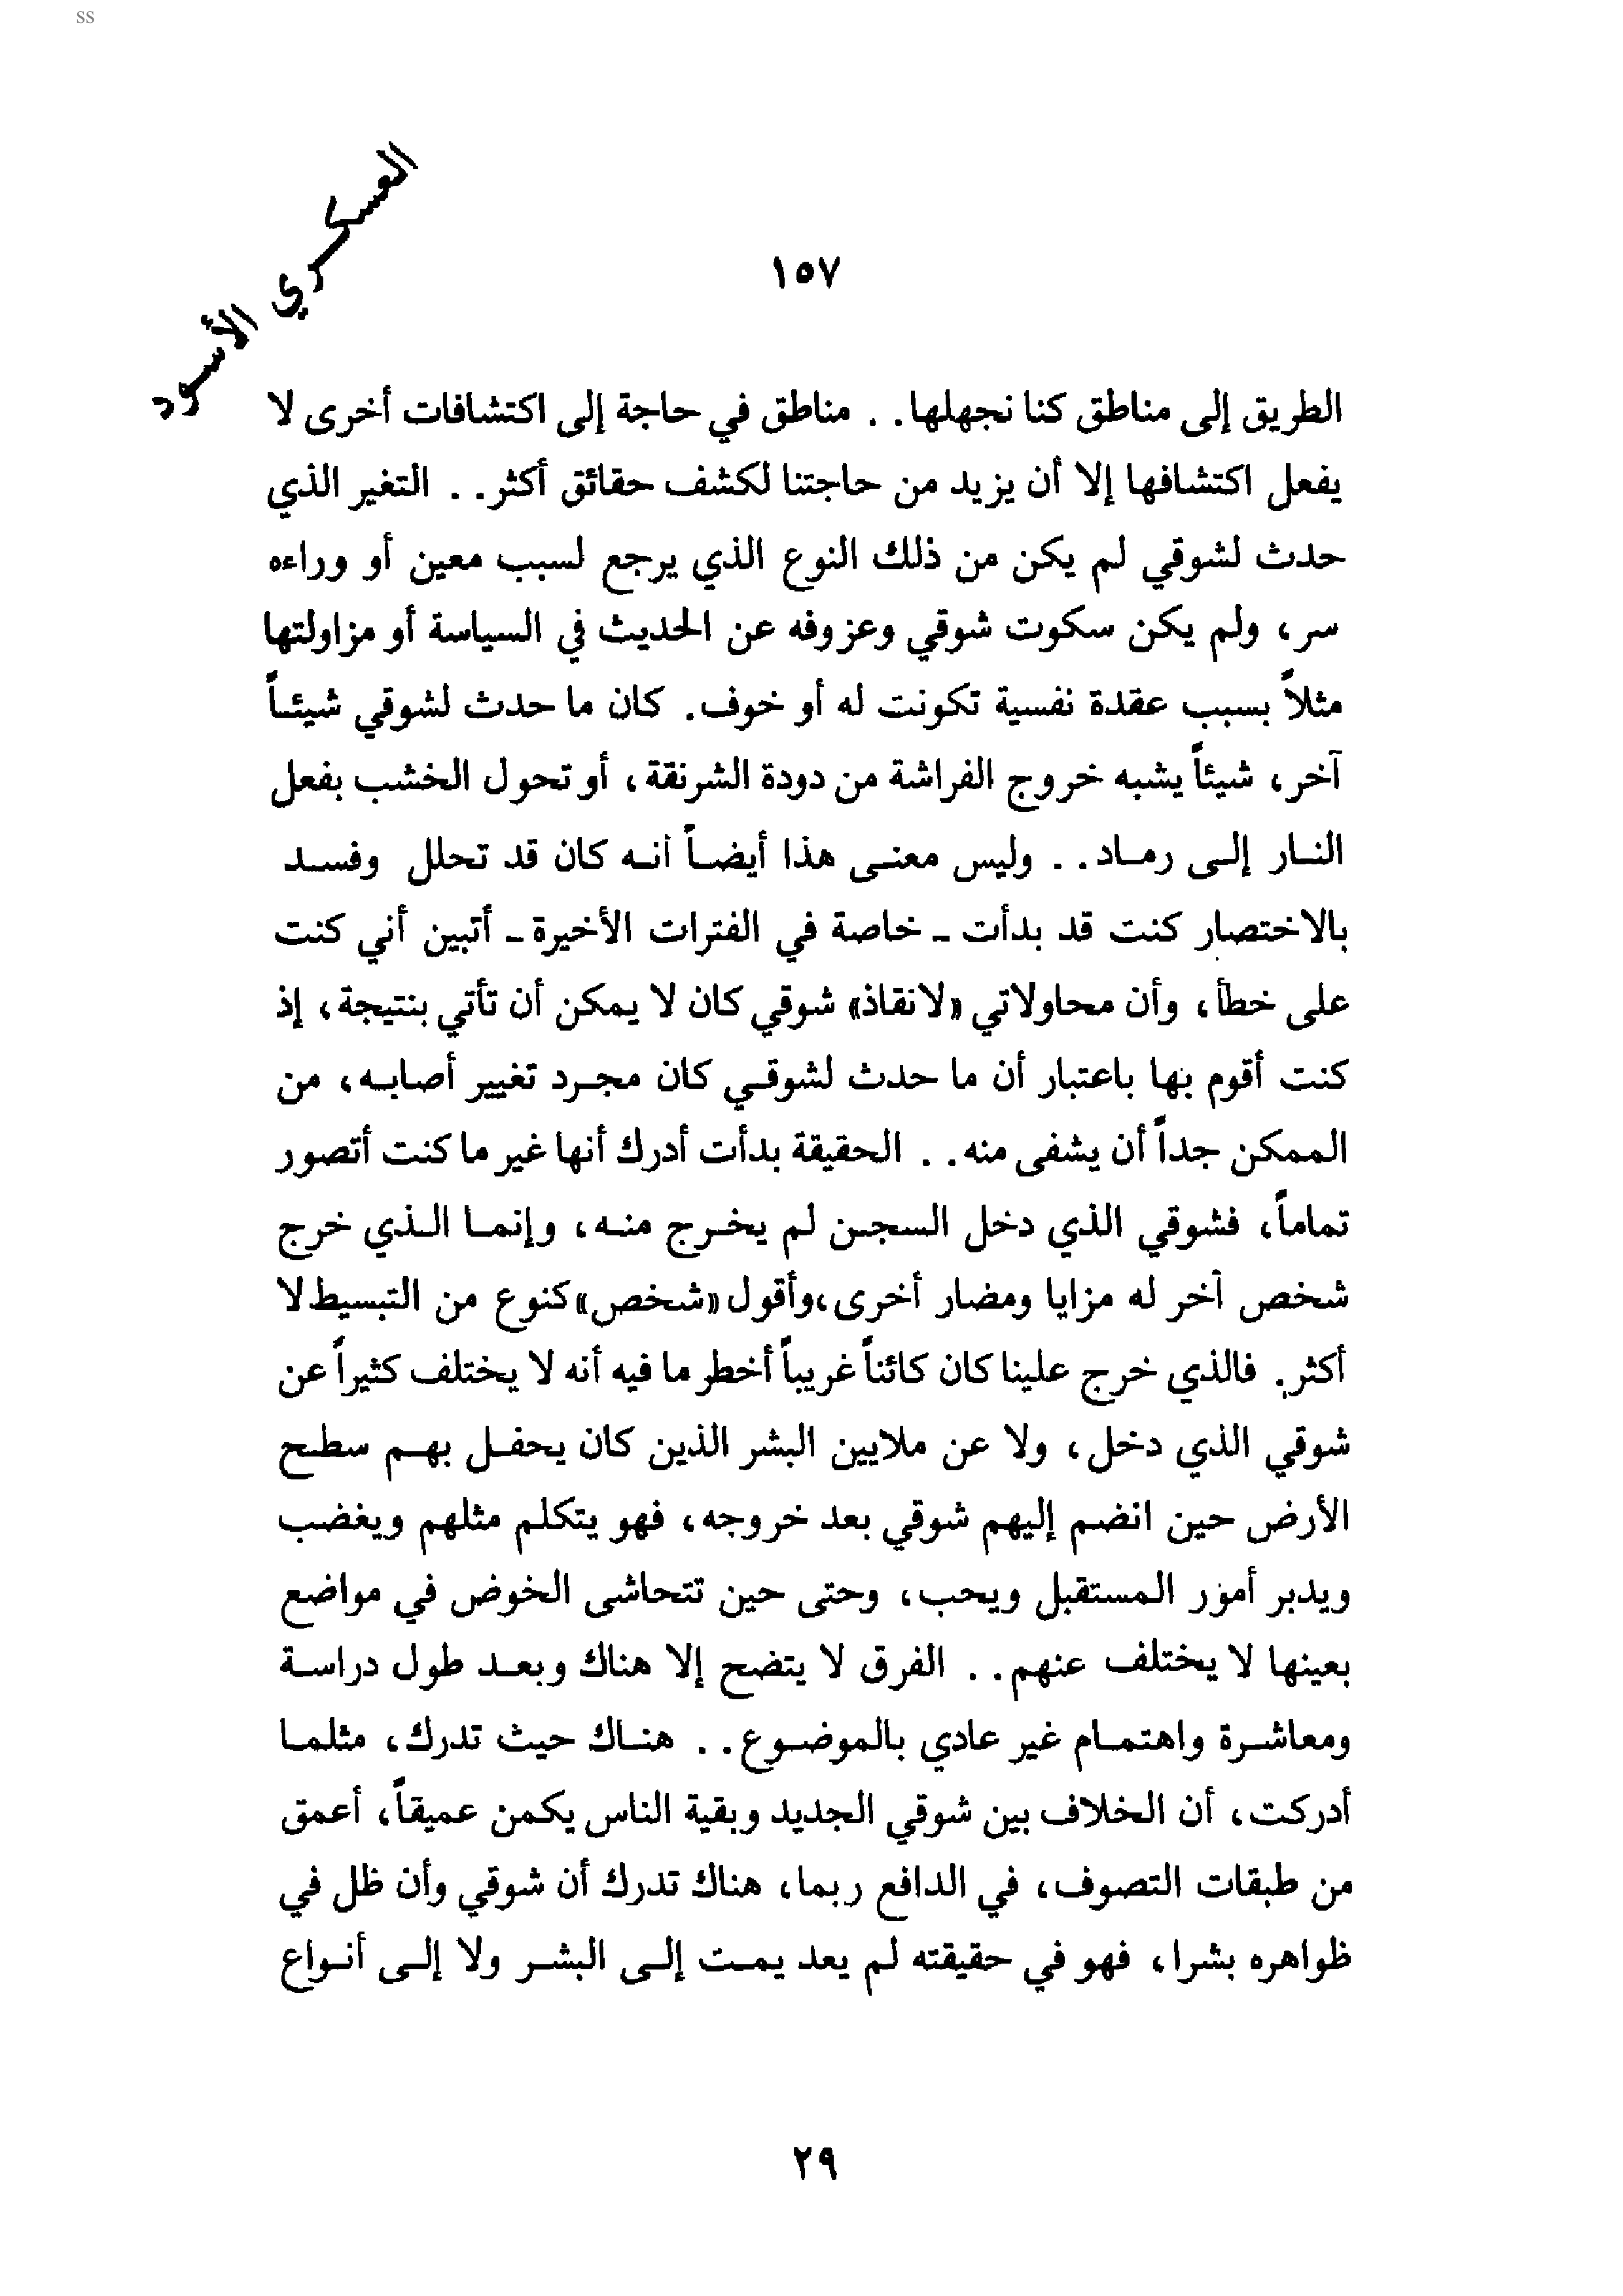 ss
العسكري الأسود
١٥٧
الطريق إلى مناطق كنا نجهلها. . مناطق في حاجة إلى اكتشافات أخرى لا
يفعل اكتشافها إلا أن يزيد من حاجتنا لكشف حقائق أكثر. . التغير الذي
حدث لشوقي لم يكن من ذلك النوع الذي يرجع لسبب معين أو وراءه
سر، ولم يكن سكوت شوقي وعزوفه عن الحديث في السياسة أو مزاولتها
مثلاً بسبب عقدة نفسية تكونت له أو خوف. كان ما حدث لشوقي شيئاً
آخر، شيئاً يشبه خروج الفراشة من دودة الشرنقة، أو تحول الخشب بفعل
النار إلى رماد. . وليس معنى هذا أيضاً أنه كان قد تحلل وفسد
بالاختصار كنت قد بدأت - خاصة في الفترات الأخيرة - أتبين أني كنت
على خطأ، وأن محاولاتي «لانقاذ» شوقي كان لا يمكن أن تأتي بنتيجة، إذ
كنت أقوم بها باعتبار أن ما حدث لشوقي كان مجرد تغيير أصابه، من
الممكن جداً أن يشفى منه. . الحقيقة بدأت أدرك أنها غير ما كنت أتصور
تماماً، فشوقي الذي دخل السجن لم يخرج منه، وإنما الذي خرج
شخص آخر له مزايا ومضار أخرى، وأقول «شخص» كنوع من التبسيط لا
أكثر. فالذي خرج علينا كان كائناً غريباً أخطر ما فيه أنه لا يختلف كثيراً عن
شوقي الذي دخل، ولا عن ملايين البشر الذين كان يحفل بهم سطح
الأرض حين انضم إليهم شوقي بعد خروجه، فهو يتكلم مثلهم ويغضب
ويدبر أمور المستقبل ويحب، وحتى حين تتحاشى الخوض في مواضع
بعينها لا يختلف عنهم. . الفرق لا يتضح إلا هناك وبعد طول دراسة
ومعاشرة واهتمام غير عادي بالموضوع. . هناك حيث تدرك، مثلما
أدركت، أن الخلاف بين شوقي الجديد وبقية الناس يكمن عميقاً، أعمق
من طبقات التصوف، في الدافع ربما، هناك تدرك أن شوقي وأن ظل في
ظواهره بشرا، فهو في حقيقته لم يعد يمت إلى البشر ولا إلى أنواع
٢٩